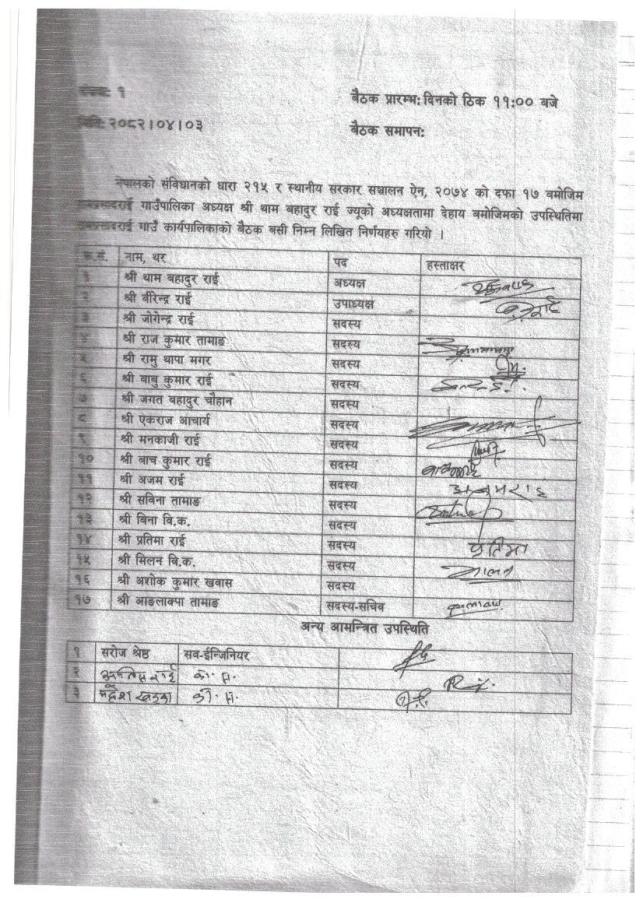 १
बैठक प्रारम्भ: दिनको ठिक ११:०० बजे
२०८२।०४।०३
बैठक समापन:
नेपालको संविधानको धारा २१५ र स्थानीय सरकार सञ्चालन ऐन, २०७४ को दफा १७ बमोजिम
गाउँपालिका अध्यक्ष श्री थाम बहादुर राई ज्यूको अध्यक्षतामा देहाय बमोजिमको उपस्थितिमा
गाउँ कार्यपालिकाको बैठक बसी निम्न लिखित निर्णयहरु गरियो ।
क्र.सं. नाम, थर पद हस्ताक्षर
१ श्री थाम बहादुर राई अध्यक्ष
श्री बीरेन्द्र राई उपाध्यक्ष
श्री जोगेन्द्र राई सदस्य
श्री राज कुमार तामाङ सदस्य
५ श्री रामु थापा मगर सदस्य
६ श्री बाबु कुमार राई सदस्य
७ श्री जगत बहादुर चौहान सदस्य
८ श्री एकराज आचार्य सदस्य
९ श्री मनकाजी राई सदस्य
१० श्री बाच कुमार राई सदस्य
११ श्री अजम राई सदस्य
१२ श्री सविना तामाङ सदस्य
१३ श्री विना वि.क. सदस्य
१४ श्री प्रतिमा राई सदस्य प्रतिमा
१५ श्री मिलन वि.क. सदस्य
१६ श्री अशोक कुमार खवास सदस्य
१७ श्री आङलाक्पा तामाङ सदस्य-सचिव
अन्य आमन्त्रित उपस्थिति
१ सरोज श्रेष्ठ सव-ईन्जिनियर
२ राई
३ खड्का